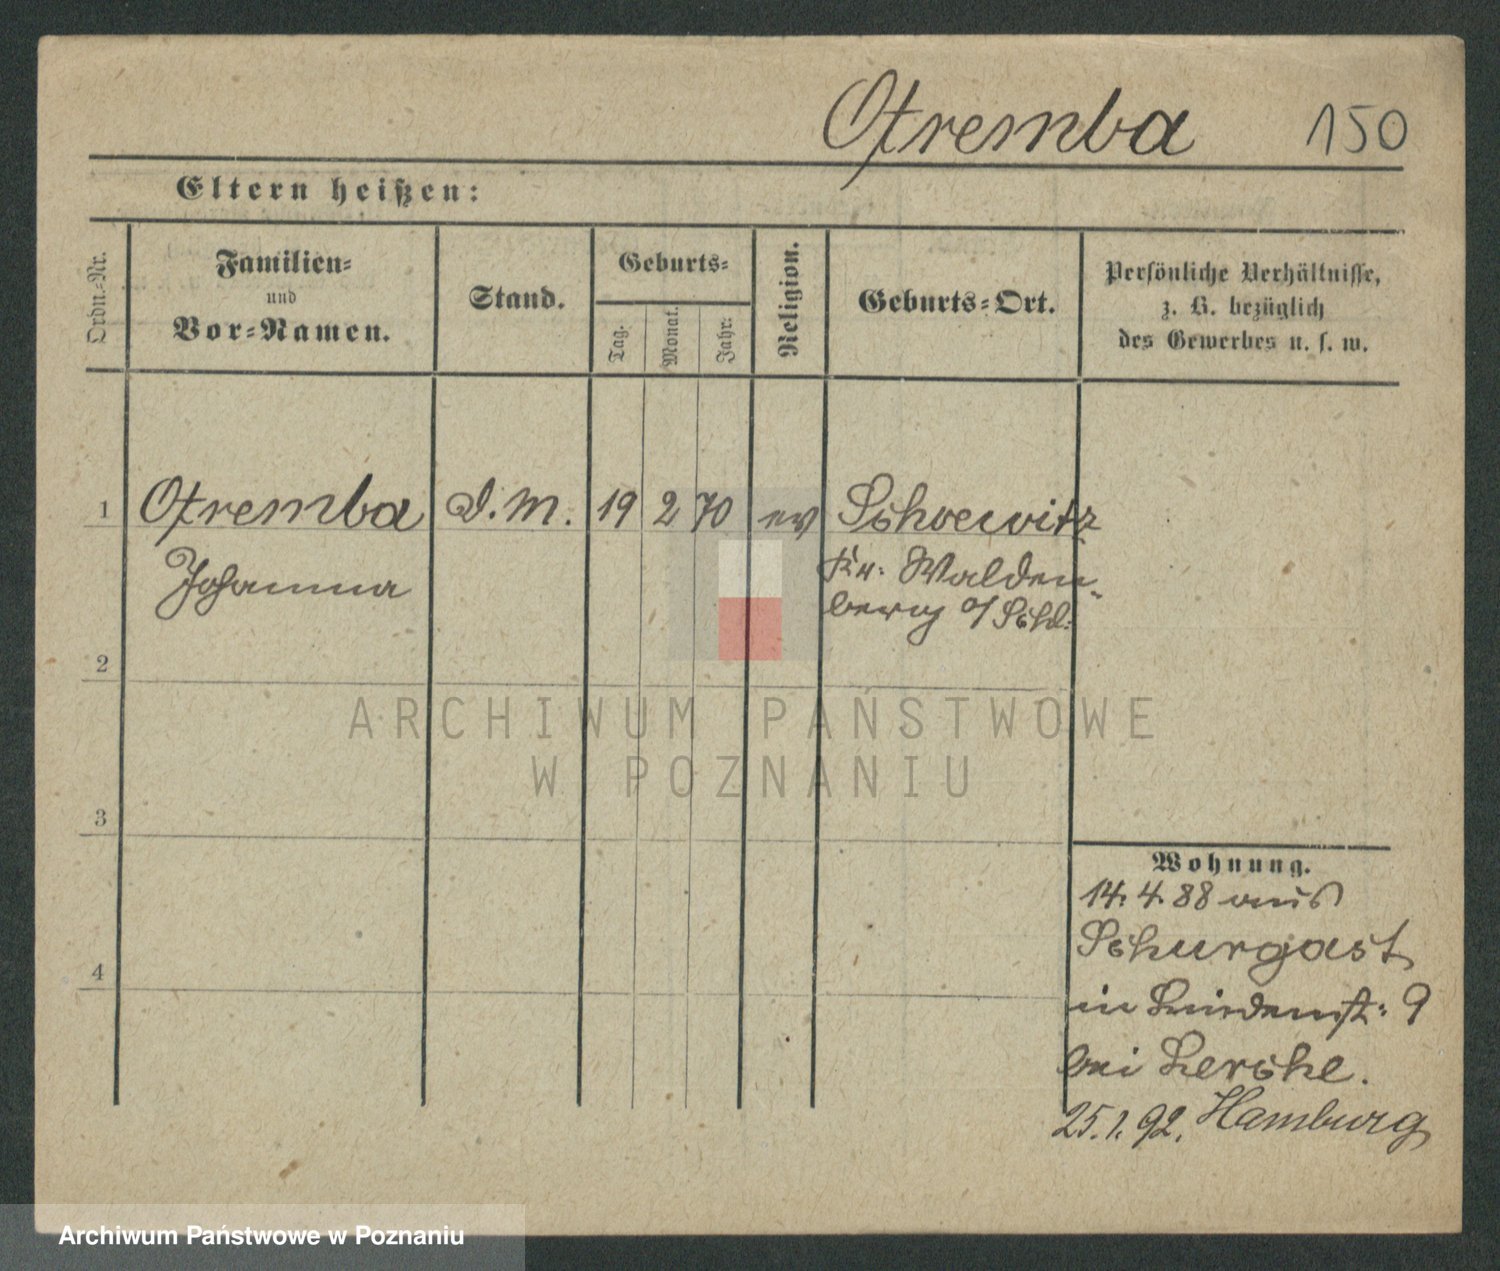 Otremba 150
Eltern heißen:
Ordn.-Nr.
Familien-
und
Vor-Namen.
Stand.
Geburts-
Tag.
Monat.
Jahr.
Religion.
Geburts-Ort.
Persönliche Verhältnisse,
z. B. bezüglich
des Gewerbes u. s. w.
1 Otremba D.M. 19 2 70 ev Schoewitz
Johanna Kr. Walden-
berg o/Schl:
2
3
4
Wohnung.
14. 4. 88 aus
Schurgast
in Lindenst: 9
bei Lerche.
25. 1. 92. Hamburg
ARCHIWUM PAŃSTWOWE
W POZNANIU
Archiwum Państwowe w Poznaniu